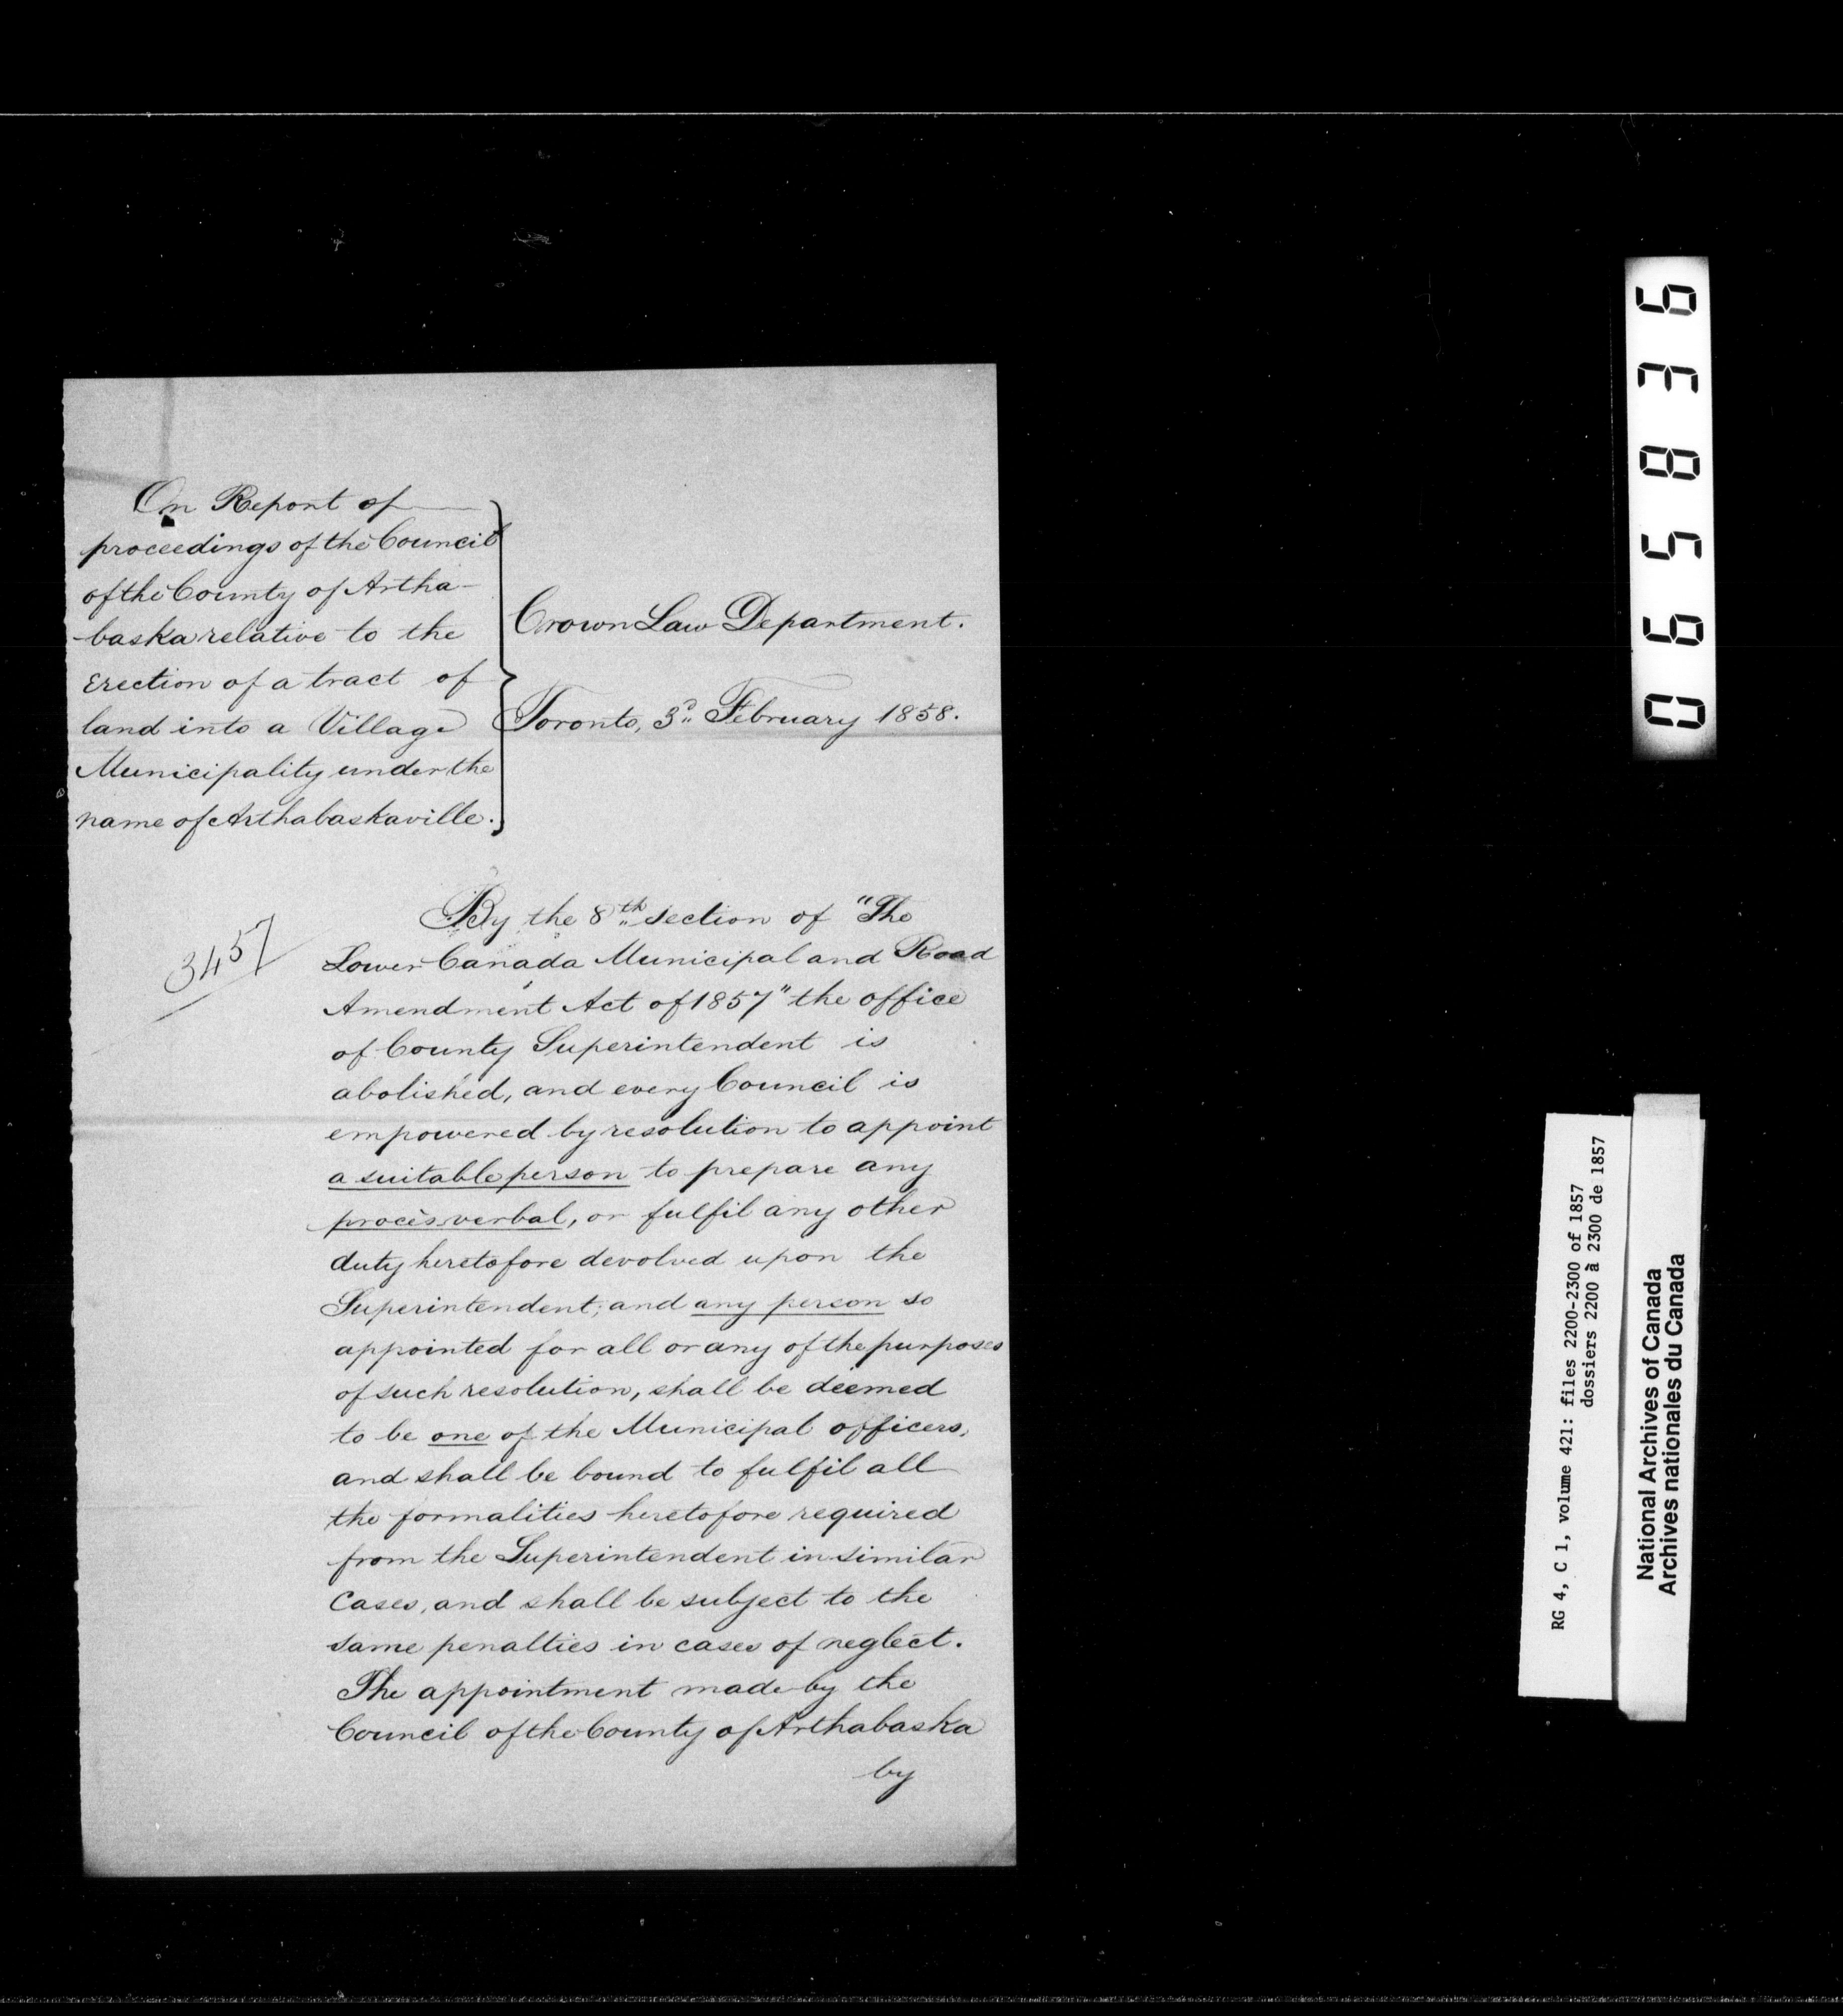 On Report of
proceedings of the Council
of the County of Artha-
-baska relative to the
Erection of a tract of
land into a Village
Municipality under the
name of Arthabaskaville.
Crown Law Department.
Toronto, 3d February 1858.
3457
By the 8th section of "The
Lower Canada Municipal and Road
Amendment Act of 1857" the office
of County Superintendent is
abolished, and every Council is
empowered by resolution to appoint
a suitable person to prepare any
procès verbal, or fulfil any other
duty heretofore devolved upon the
Superintendent; and any person so
appointed for all or any of the purposes
of such resolution, shall be deemed
to be one of the Municipal officers,
and shall be bound to fulfil all
the formalities heretofore required
from the Superintendent in similar
Cases, and shall be subject to the
same penalties in cases of neglect.
The appointment made by the
Council of the County of Arthabaska
by
065836
RG 4, C 1, volume 421: files 2200-2300 of 1857
dossiers 2200 à 2300 de 1857
National Archives of Canada
Archives nationales du Canada